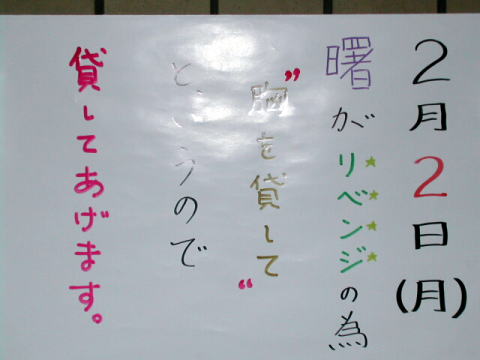 2月2日(月)
曙がリベンジの為
"胸を貸して"
というので
貸してあげます。